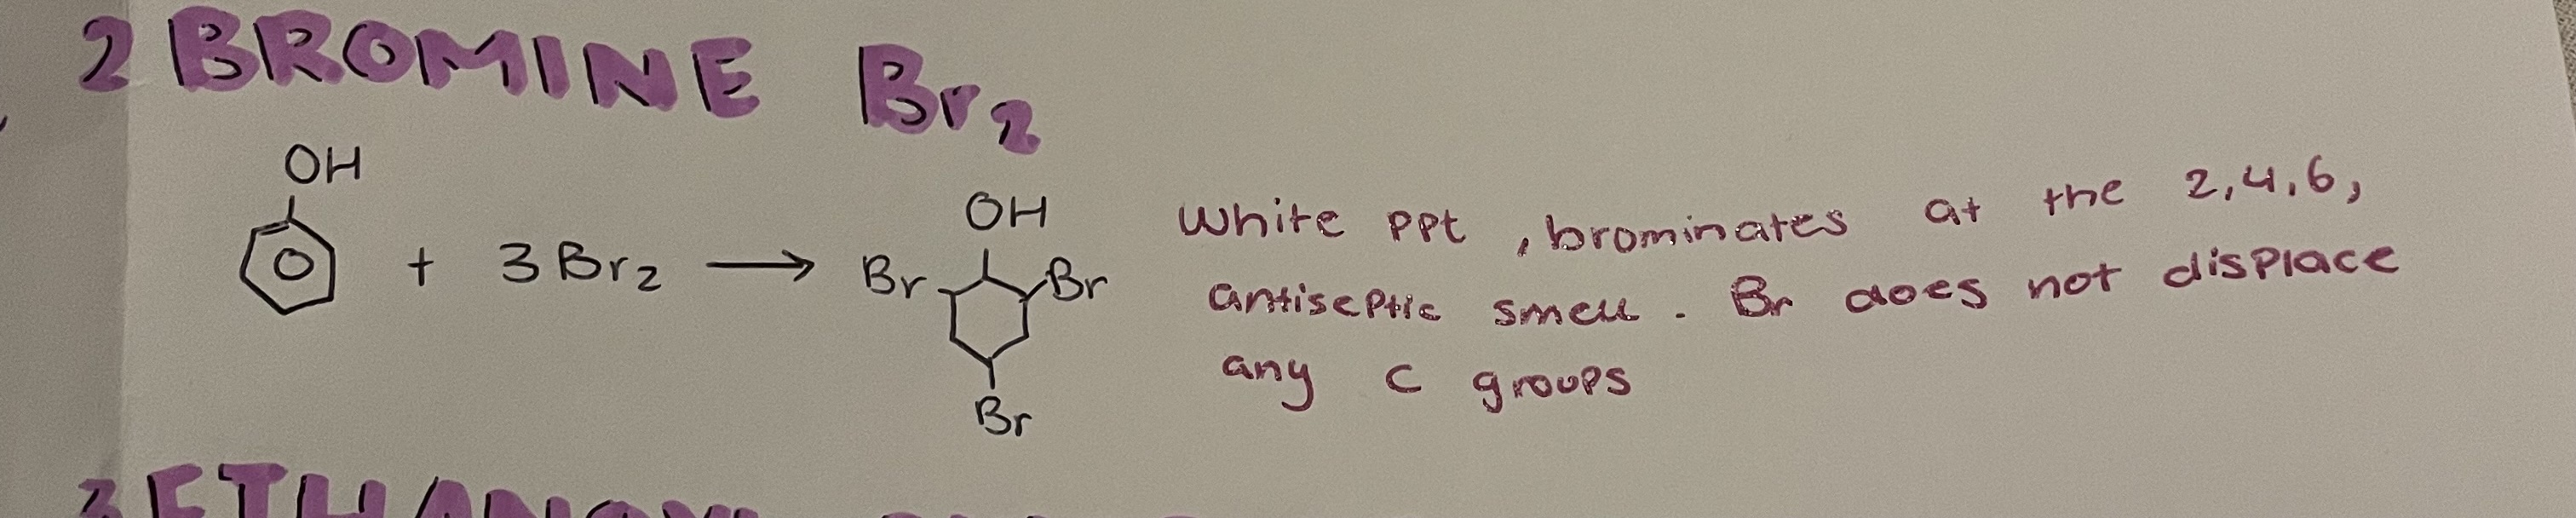 2 BROMINE Br2
OH
+ 3Br2 →
OH
Br Br
Br
White ppt, brominates at the 2,4,6,
antiseptic smell. Br does not displace
any C groups
3 ETHANOYL